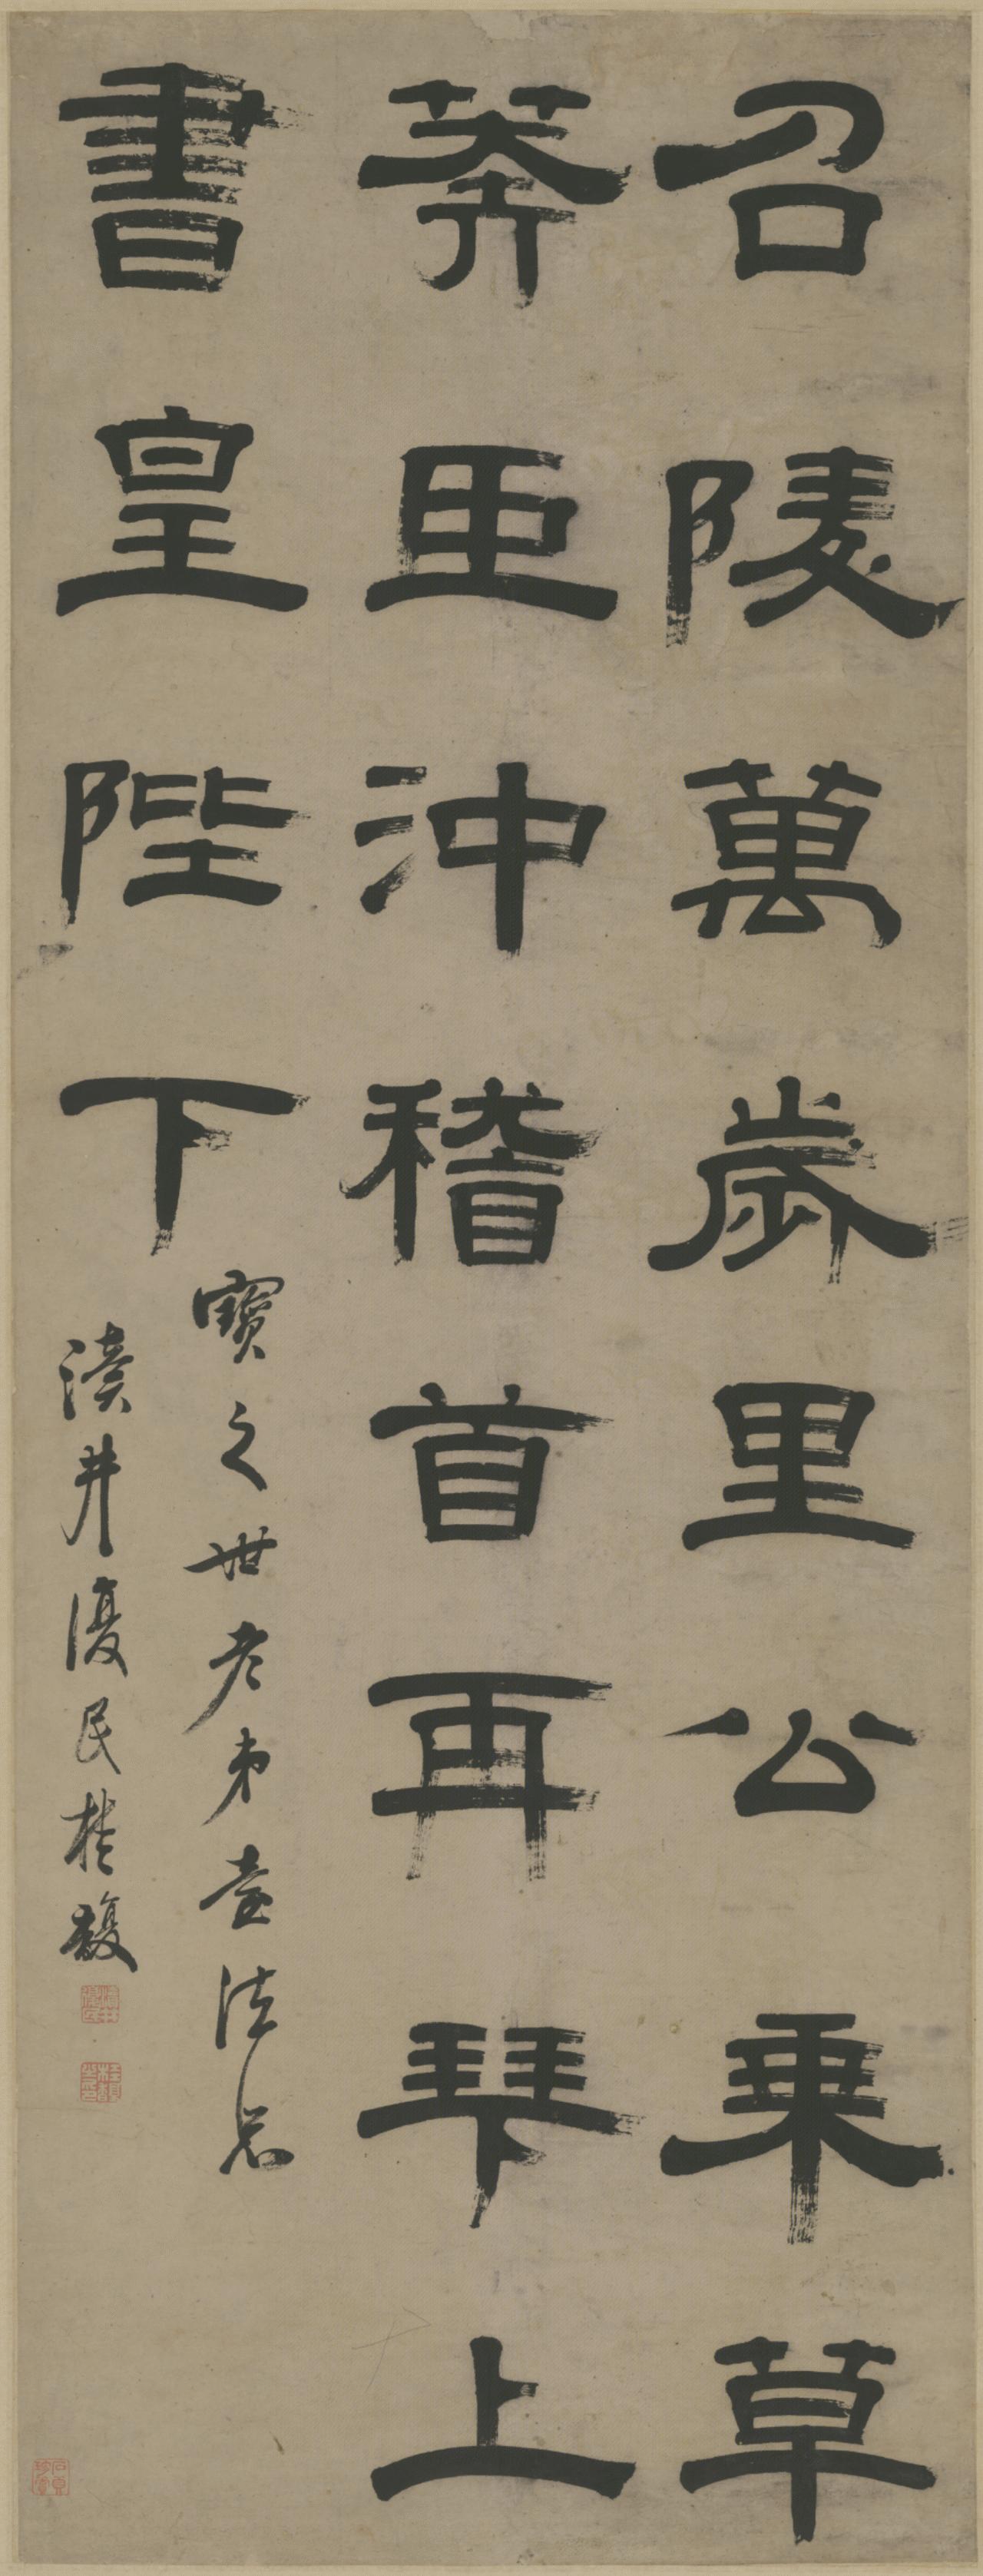 召陵萬歲里公乘草
莽臣沖稽首再拜上
書皇陛下
寶之世老弟臺法
瀆井復民桂馥